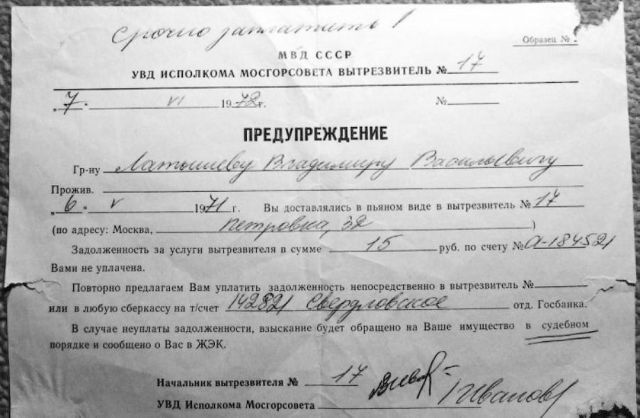 Срочно заплатить!
Образец №
МВД СССР
УВД ИСПОЛКОМА МОСГОРСОВЕТА ВЫТРЕЗВИТЕЛЬ № 17
7. VI 1972 г. №
ПРЕДУПРЕЖДЕНИЕ
Гр-ну Латышеву Владимиру Васильевичу
Прожив.
6. V 1971 г. Вы доставлялись в пьяном виде в вытрезвитель № 17
(по адресу: Москва, Петровка, 38)
Задолженность за услуги вытрезвителя в сумме 15 руб. по счету № а-184521
Вами не уплачена.
Повторно предлагаем Вам уплатить задолженность непосредственно в вытрезвитель №
или в любую сберкассу на т/счет 142821 Свердловское отд. Госбанка.
В случае неуплаты задолженности, взыскание будет обращено на Ваше имущество в судебном
порядке и сообщено о Вас в ЖЭК.
Начальник вытрезвителя № 17
УВД Исполкома Мосгорсовета Иванов